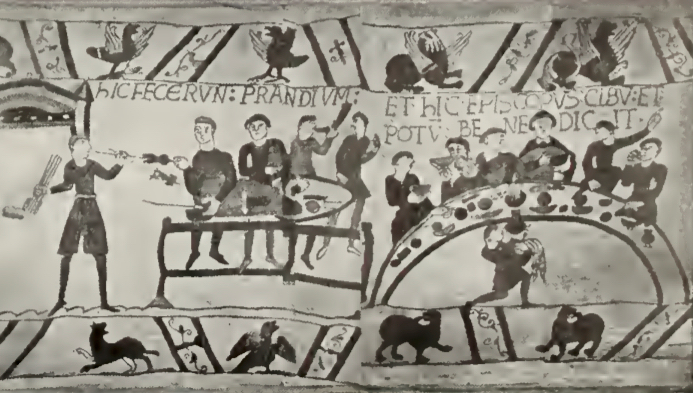 hIC FECERVN: PRANDIVM:
ET hIC EPISCOPVS CIBV: ET
POTV: BE NE DIC IT.